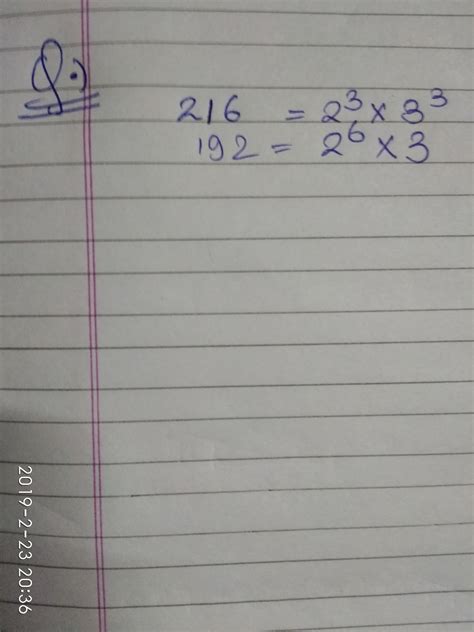 Q.)
216 = 2³ × 3³
192 = 2⁶ × 3
2019-2-23 20:36